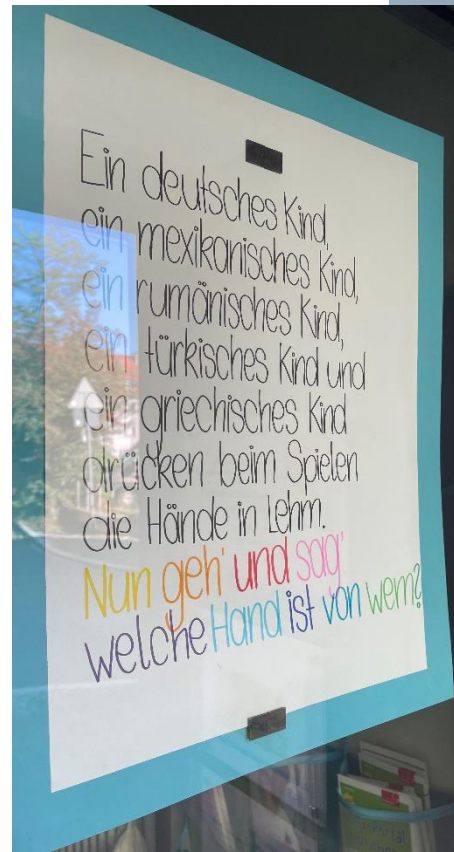 Ein deutsches Kind,
ein mexikanisches Kind,
ein rumänisches Kind,
ein türkisches Kind und
ein griechisches Kind
drücken beim Spielen
die Hände in Lehm.
Nun geh' und sag'
welche Hand ist von wem?